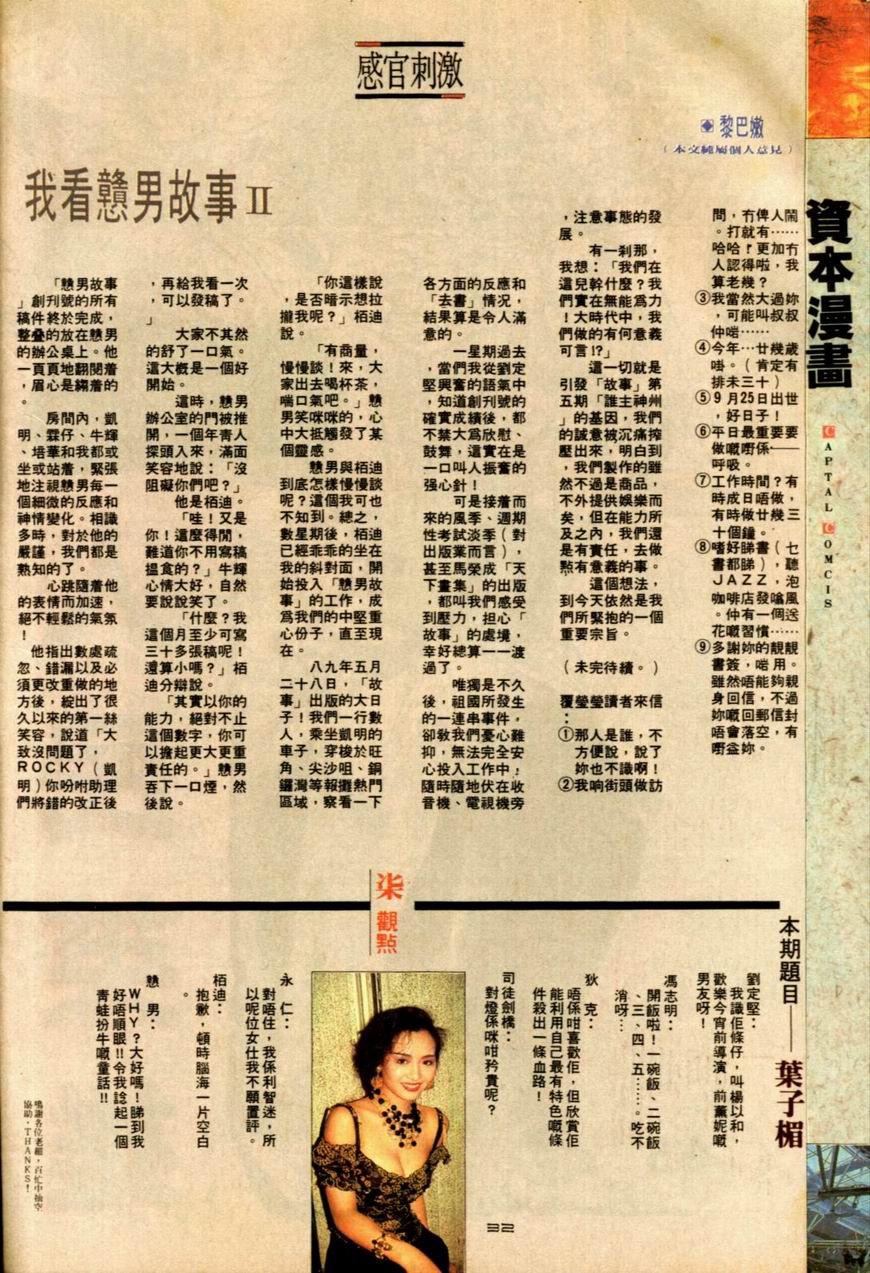 感官刺激
黎巴嫩
（本文純屬個人意見）
我看戇男故事II
「戇男故事
」創刊號的所有
稿件終於完成，
整叠的放在戇男
的辦公桌上。他
一頁頁地翻閱着
，眉心是縐着的
。
房間內，凱
明、霖仔、牛輝
、培華和我都或
坐或站着，緊張
地注視戇男每一
個細微的反應和
神情變化。相識
多時，對於他的
嚴謹，我們都是
熟知的了。
心跳隨着他
的表情而加速，
絕不輕鬆的氣氛
！
他指出數處疏
忽、錯漏以及必
須更改重做的地
方後，綻出了很
久以來的第一絲
笑容，說道「大
致沒問題了，
ROCKY（凱
明）你吩咐助理
們將錯的改正後
，再給我看一次
，可以發稿了。
」
大家不其然
的舒了一口氣。
這大概是一個好
開始。
這時，戇男
辦公室的門被推
開，一個年青人
探頭入來，滿面
笑容地說：「沒
阻礙你們吧？」
他是栢迪。
「哇！又是
你！這麼得閒，
難道你不用寫稿
搵食的？」牛輝
心情大好，自然
要說說笑了。
「什麼？我
這個月至少可寫
三十多張稿呢！
還算小嗎？」栢
迪分辯說。
「其實以你的
能力，絕對不止
這個數字，你可
以擔起更大更重
責任的。」戇男
吞下一口煙，然
後說。
「你這樣說
，是否暗示想拉
攏我呢？」栢迪
說。
「有商量，
慢慢談！來，大
家出去喝杯茶，
喘口氣吧。」戇
男笑咪咪的，心
中大抵觸發了某
個靈感。
戇男與栢迪
到底怎樣慢慢談
呢？這個我可也
不知到。總之，
數星期後，栢迪
已經乖乖的坐在
我的斜對面，開
始投入「戇男故
事」的工作，成
爲我們的中堅重
心份子，直至現
在。
八九年五月
二十八日，「故
事」出版的大日
子！我們一行數
人，乘坐凱明的
車子，穿梭於旺
角、尖沙咀、銅
鑼灣等報攤熱門
區域，察看一下
各方面的反應和
「去書」情况，
結果算是令人滿
意的。
一星期過去
，當們我從劉定
堅興奮的語氣中
，知道創刊號的
確實成績後，都
不禁大爲欣慰、
鼓舞，這實在是
一口叫人振奮的
强心針！
可是接着而
來的風季、週期
性考試淡季（對
出版業而言），
甚至馬榮成「天
下畫集」的出版
，都叫我們感受
到壓力，担心「
故事」的處境，
幸好總算一一渡
過了。
唯獨是不久
後，祖國所發生
的一連串事件，
卻敎我們憂心難
抑，無法完全安
心投入工作中，
隨時隨地伏在收
音機、電視機旁
，注意事態的發
展。
有一剎那，
我想：「我們在
這兒幹什麼？我
們實在無能爲力
！大時代中，我
們做的有何意義
可言!?」
這一切就是
引發「故事」第
五期「誰主神州
」的基因，我們
的誠意被沉痛搾
壓出來，明白到
，我們製作的雖
然不過是商品，
不外提供娛樂而
矣，但在能力所
及之內，我們還
是有責任，去做
點有意義的事。
這個想法，
到今天依然是我
們所緊抱的一個
重要宗旨。
（未完待續。）
覆瑩瑩讀者來信
：
①那人是誰，不
方便說，說了
妳也不識啊！
②我响街頭做訪
問，冇俾人鬧
。打就有……
哈哈！更加冇
人認得啦，我
算老幾？
③我當然大過妳
，可能叫叔叔
仲啱……
④今年…廿幾歲
啩。（肯定有
排未三十）
⑤9月25日出世
，好日子！
⑥平日最重要要
做嘅嘢係——
呼吸。
⑦工作時間？有
時成日唔做，
有時做廿幾三
十個鐘。
⑧嗜好睇書（乜
書都睇），聽
JAZZ，泡
咖啡店發噏風
。仲有一個送
花嘅習慣……
⑨多謝妳的靚靚
書簽，啱用。
雖然唔能夠親
身回信，不過
妳嘅回郵信封
唔會落空，有
嘢益妳。
資本漫畫
CAPTAL COMCIS
柒觀點
本期題目——葉子楣
劉定堅：
我識佢條仔，叫楊以和，
歡樂今宵前導演，前薰妮嘅
男友呀！
馮志明：
開飯啦！一碗飯、二碗飯
、三、四、五……。吃不
消呀…
狄克：
唔係咁喜歡佢，但欣賞佢
能利用自己最有特色嘅條
件殺出一條血路！
司徒劍橋：
對燈係咪咁矜貴呢？
永仁：
對唔住，我係利智迷，所
以呢位女仕我不願置評。
栢迪：
抱歉，頓時腦海一片空白
。
戇男：
WHY？大好嗎！睇到我
好唔順眼!!令我諗起一個
青蛙扮牛嘅童話!!
鳴謝各位老細，百忙中抽空
協助，THANKS！
32